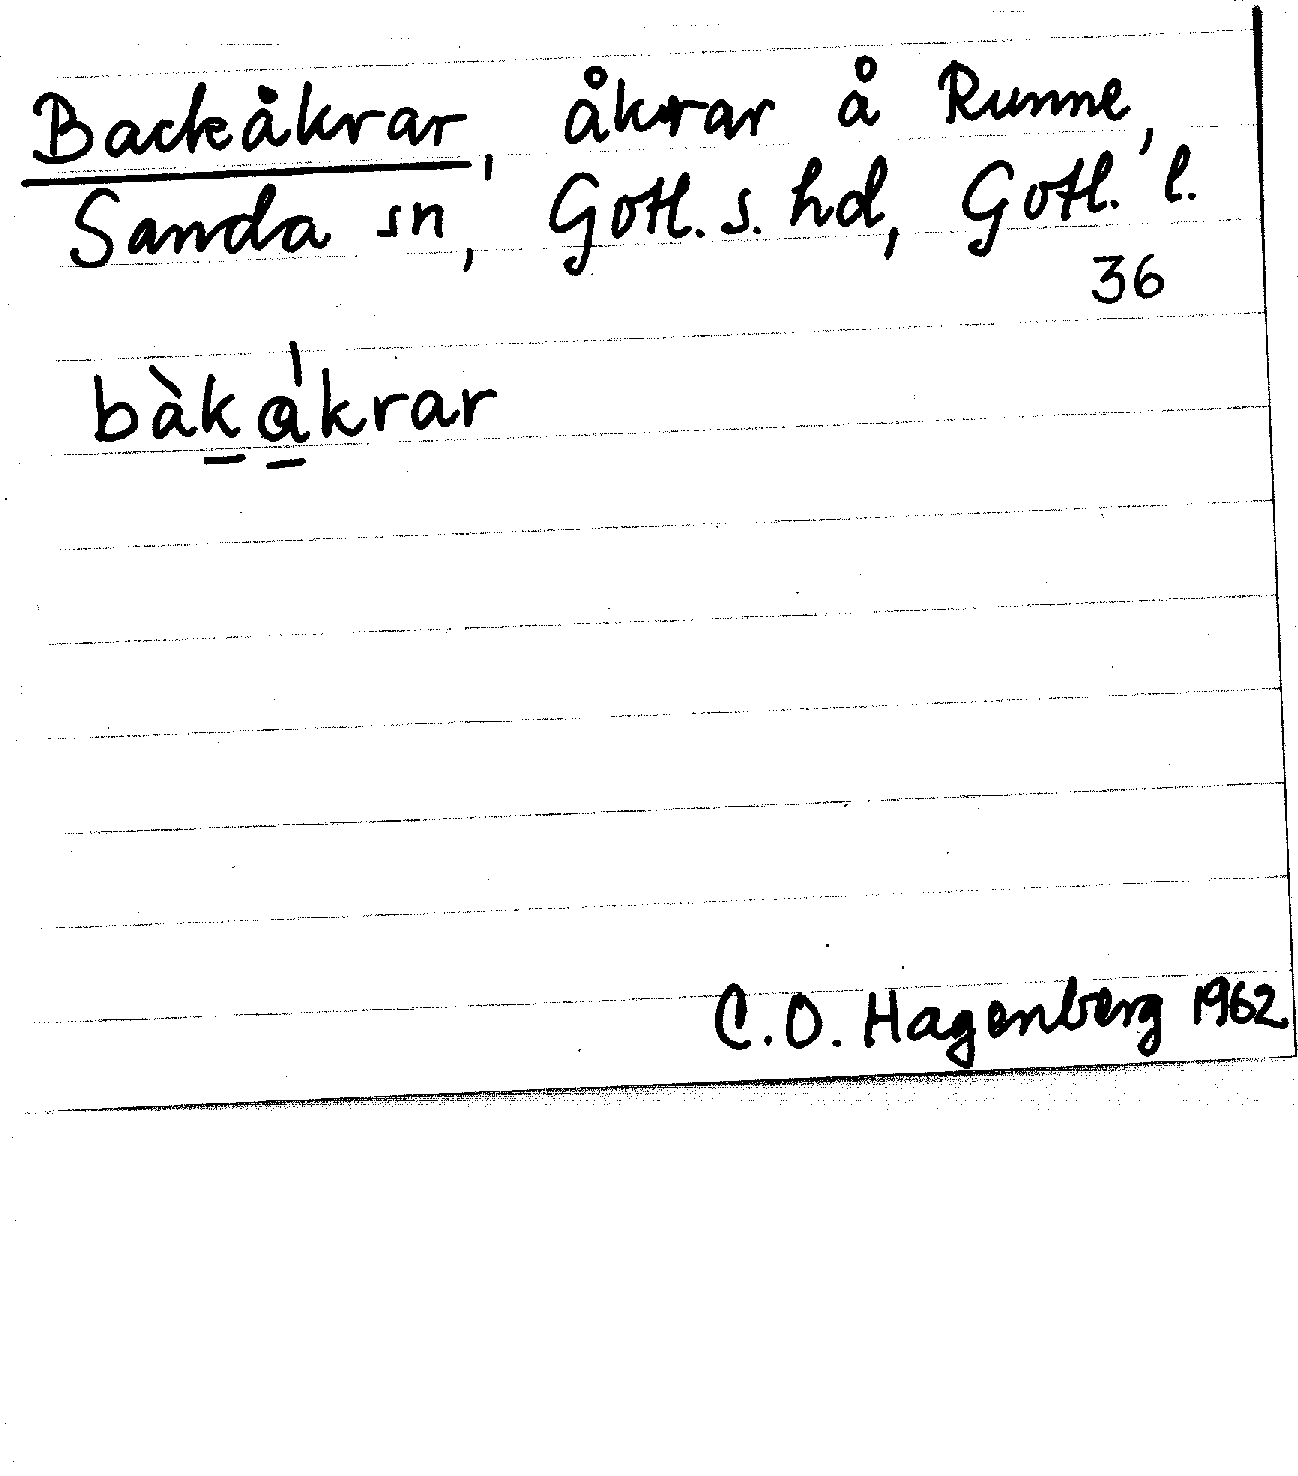 Backåkrar, åkrar å Runne,
Sanda sn, Gotl. s. hd, Gotl. l.
36
bàkákrar
C. O. Hagenberg 1962